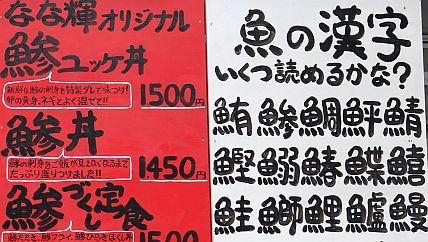 なな輝オリジナル
鯵ユッケ丼
新鮮な鯵の刺身を特製ダレで味つけ!
卵の黄身、ネギとよく混ぜて!!
1500円
鯵丼
鯵の刺身をご飯が見えなくなるまで
たっぷり盛りつけました!!
1450円
鯵づくし定食
鯵たたき、鯵フライ、鯵ひらきほぐし丼
1500
魚の漢字
いくつ読めるかな?
鮪鯵鯛鮃鯖
鰹鰯鰆鰈鱚
鮭鰤鯉鱸鰻